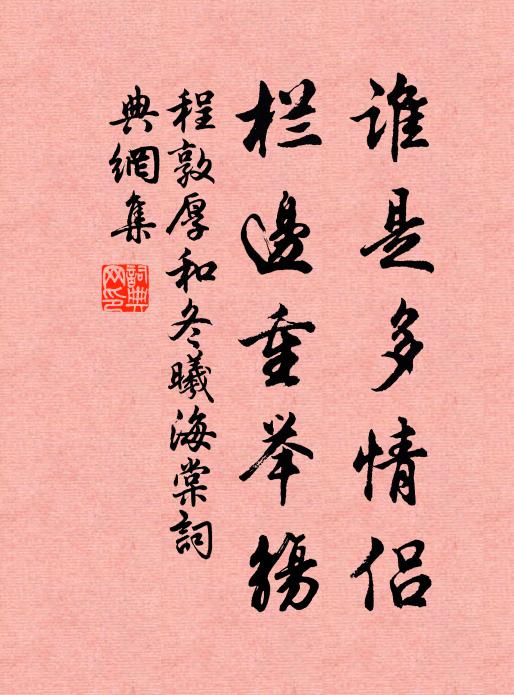 谁是多情侣
栏边重举觞
程敦厚和冬曦海棠詞
典網集
詞典网印